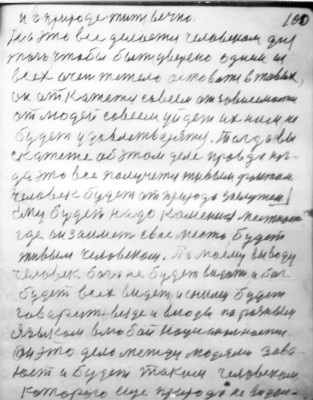 и в природе жить вечно. 100
На это все делается человеком для
того чтобы быть уверено одним и
всех очень тяжело оставать в таких,
он откажется совсем от зависимости
от людей совсем уйдет их нам не
будет удовлетворять. Тогда вы
скажете об этом деле правда ког-
да это все получит живым фактом
человек будет от природы заслужен
Ему будет надо Каменная местность
где он займет свое место будет
живым человеком. По моему выводу
человек Бога не будет видать а Бог
будет всех видеть и с ними будет
говорить везде и всюду на разным
языком в любой национальности.
Он это дело между людьми заво-
юет и будет таким человеком
которого еще природа не видала